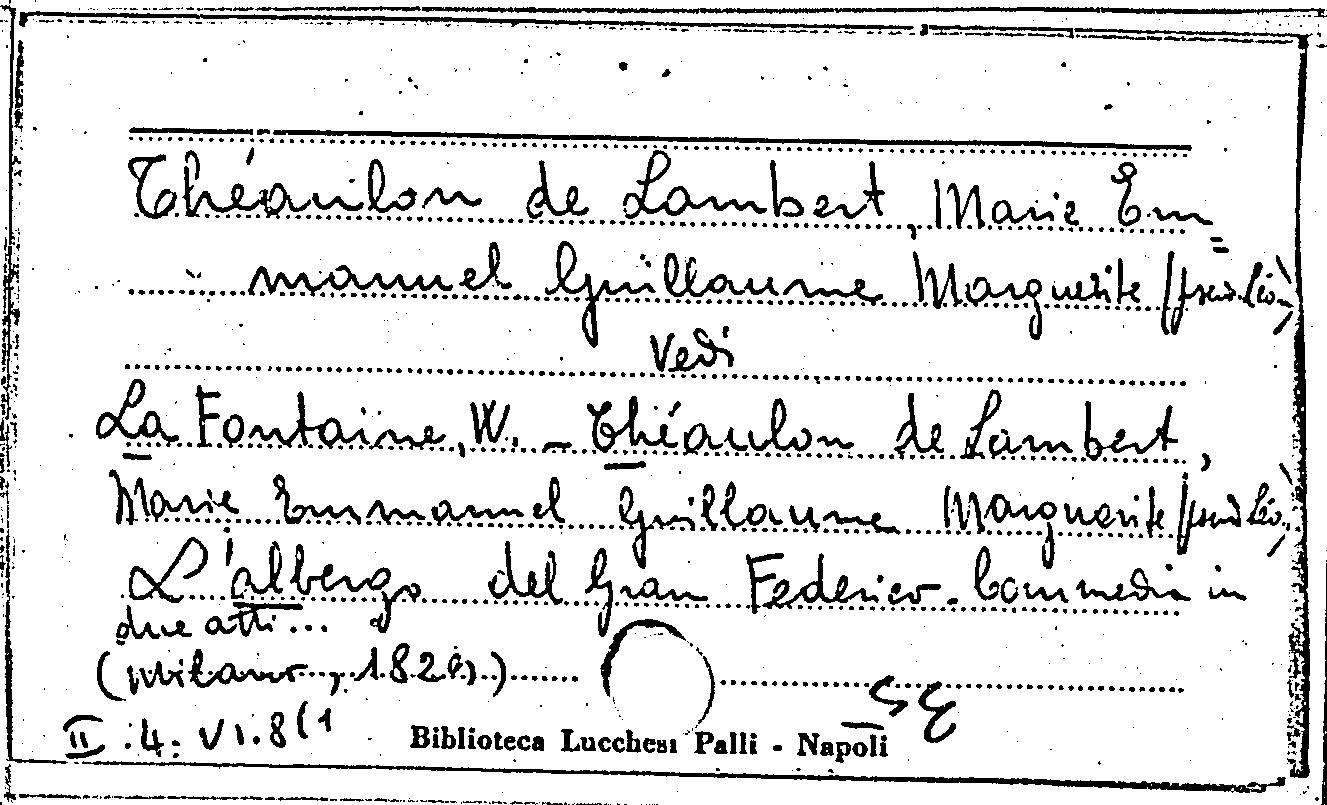 Théaulon de Lambert, Marie Em=
manuel Guillaume Marguerite (pseud. Léon)
Vedi
La Fontaine, W. - Théaulon de Lambert,
Marie Emmanuel Guillaume Marguerite (pseud Léon)
L'albergo del Gran Federico. Commedia in
due atti...
(Milano, 182)
II.4.VI.8(1
Biblioteca Lucchesi Palli - Napoli